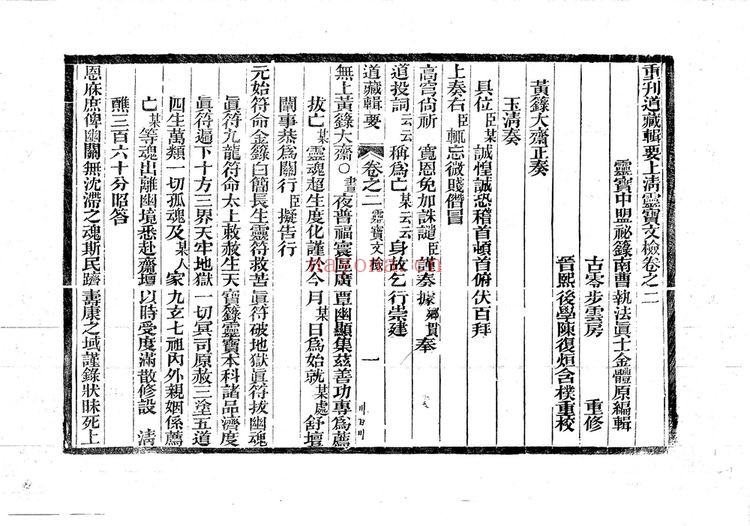 重刊道藏輯要上淸靈寶文檢卷之二
靈寶中盟祕籙南曹執法眞士金體原編輯
古岺步雲房　重修
晉熙後學陳復烜含樸重校
黃籙大齋正奏
玉淸奏
具位臣某誠惶誠恐稽首頓首俯伏百拜
上奏右臣輒忘微賤僭冒
高穹尙祈　寬恩免加誅譴臣謹奏據鄉貫奉
道投詞云云稱爲亡某云云身故乞行崇建
道藏輯要　卷之二　靈寶文檢　一
無上黃籙大齋○晝夜普福寰區廣覃幽顯集茲善功專爲薦
拔亡某靈魂超生度化謹於今月某日爲始就某處舒壇
關事恭爲關行臣擬告行
元始符命金籙白簡長生靈符救苦眞符破地獄眞符拔幽魂
眞符九龍符命太上敕赦生天寶籙靈寶本科諸品濟度
眞符遍下十方三界天牢地獄一切冥司原赦三塗五道
四生萬類一切孤魂及某人家九玄七祖內外親姻係薦
亡某等魂出離幽境悉赴齋壇以時受度滿散修設　淸
醮三百六十分昭答
恩庥庶俾幽關無沈滯之魂斯民躋壽康之域謹錄狀昧死上
nayona.cn